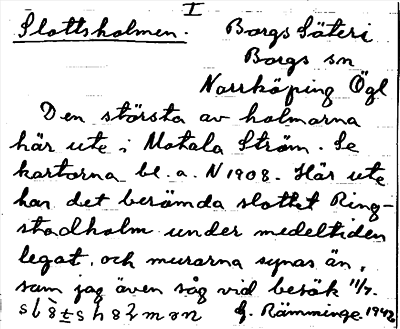 I
Slottsholmen. Borgs Säteri
Borgs sn
Norrköping Ögl
Den största av holmarna
här ute i Motala Ström. Se
kartorna bl. a. N 1908. Här ute
har det berömda slottet Ring-
stadholm under medeltiden
legat, och murarna synas än,
som jag även såg vid besök 11/7.
G. Rämminge. 1942